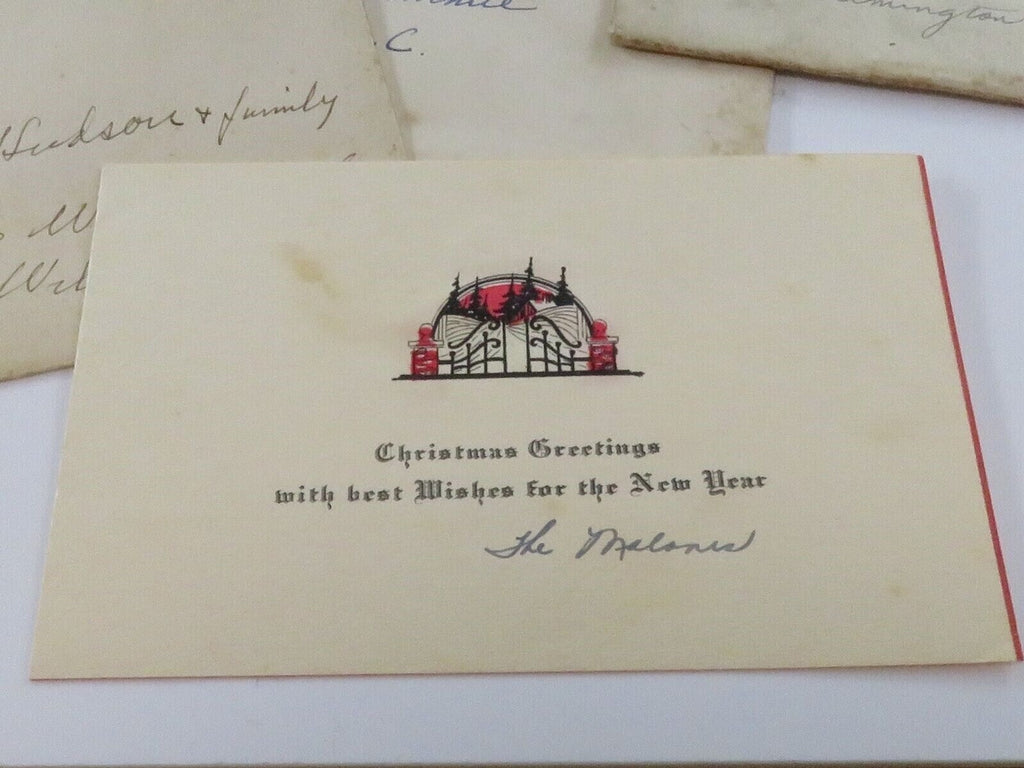 C.
Hudson & family
Christmas Greetings
with best Wishes for the New Year
The Malones